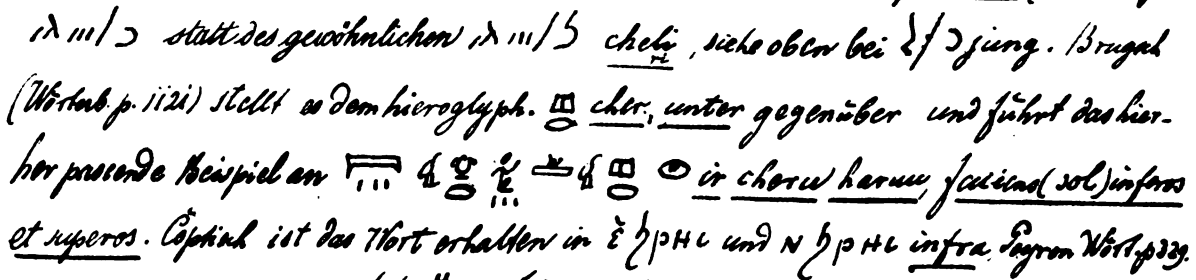 statt des gewöhnlichen cheli, siehe oben bei jung. Brugsch
(Wörterb. p. 1121) stellt es dem hieroglyph. cher, unter gegenüber und führt das hier-
her passende Beispiel an ir cheru haru, faciens (sol) inferos
et superos. Coptisch ist das Wort erhalten in ϩⲣⲏⲓ und ⲛ ϩⲣⲏⲓ infra Peyron Wört. p 329.